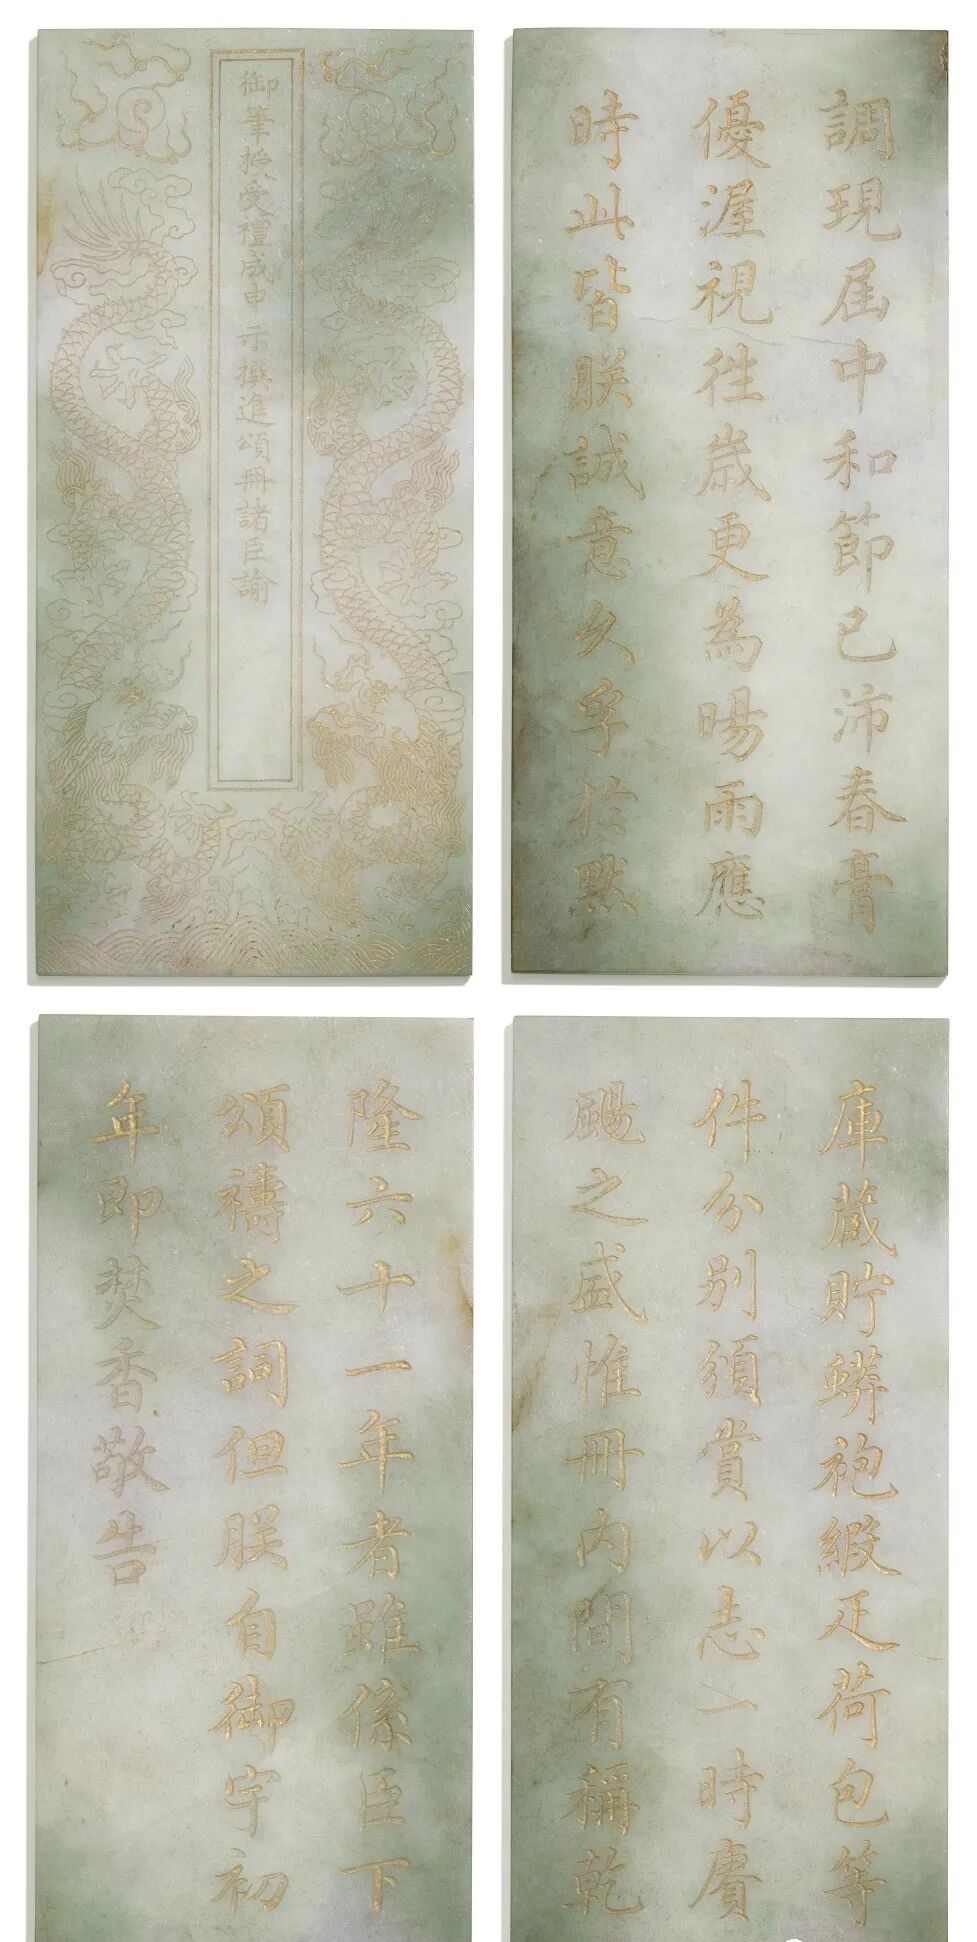 御筆授受禮成申示撰進頌冊諸臣諭
調現屆中和節已沛春膏
優渥視徃歲更為暘雨應
時此皆朕誠意久孚於默
庫蔵貯蟒袍緞疋荷包等
件分別頒賞以志一時賡
颺之盛惟冊内間有稱乾
隆六十一年者雖係臣下
頌禱之詞但朕自御宇初
年即焚香敬告